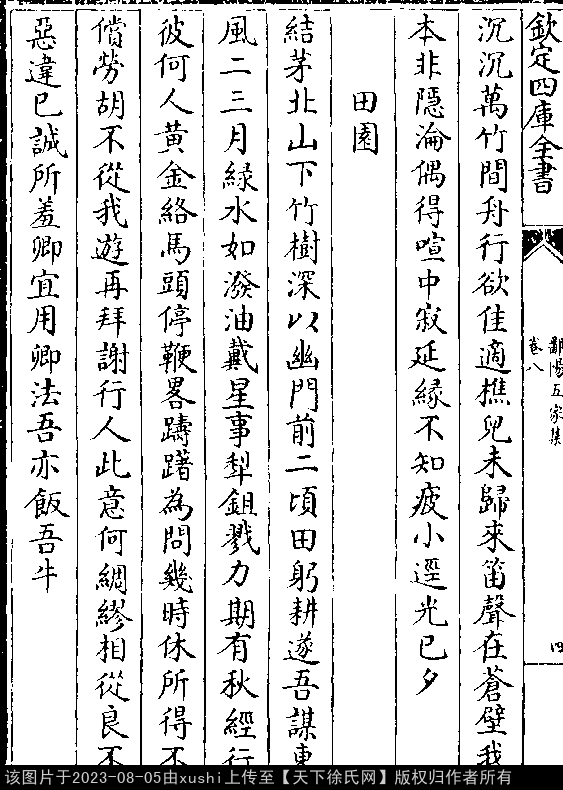 欽定四庫全書
鄱陽五家集
卷八
四
沉沉萬竹間舟行欲佳適樵兒未歸來笛聲在蒼壁我
本非隱淪偶得喧中寂延緣不知疲小逕光已夕
田園
結茅北山下竹樹深以幽門前二頃田躬耕遂吾謀東
風二三月綠水如潑油戴星事犁鉏戮力期有秋經行
彼何人黃金絡馬頭停鞭畧躊躇為問幾時休所得不
償勞胡不從我遊再拜謝行人此意何綢繆相從良不
惡違已誠所羞卿宜用卿法吾亦飯吾牛
该图片于2023-08-05由xushi上传至【天下徐氏网】版权归作者所有